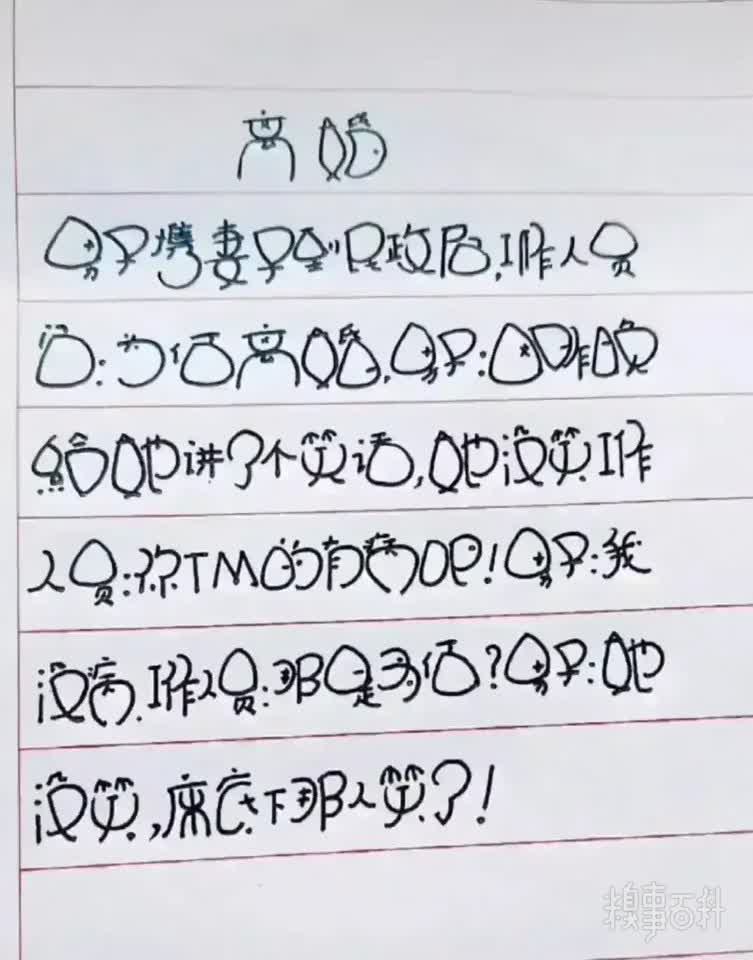 离婚
男子携妻子到民政局,工作人员
问:为何离婚,男子:因昨晚
给她讲了个笑话,她没笑.工作
人员:你TM的有病吧!男子:我
没病.工作人员:那是为何?男子:她
没笑,床底下那人笑了!
糗事百科